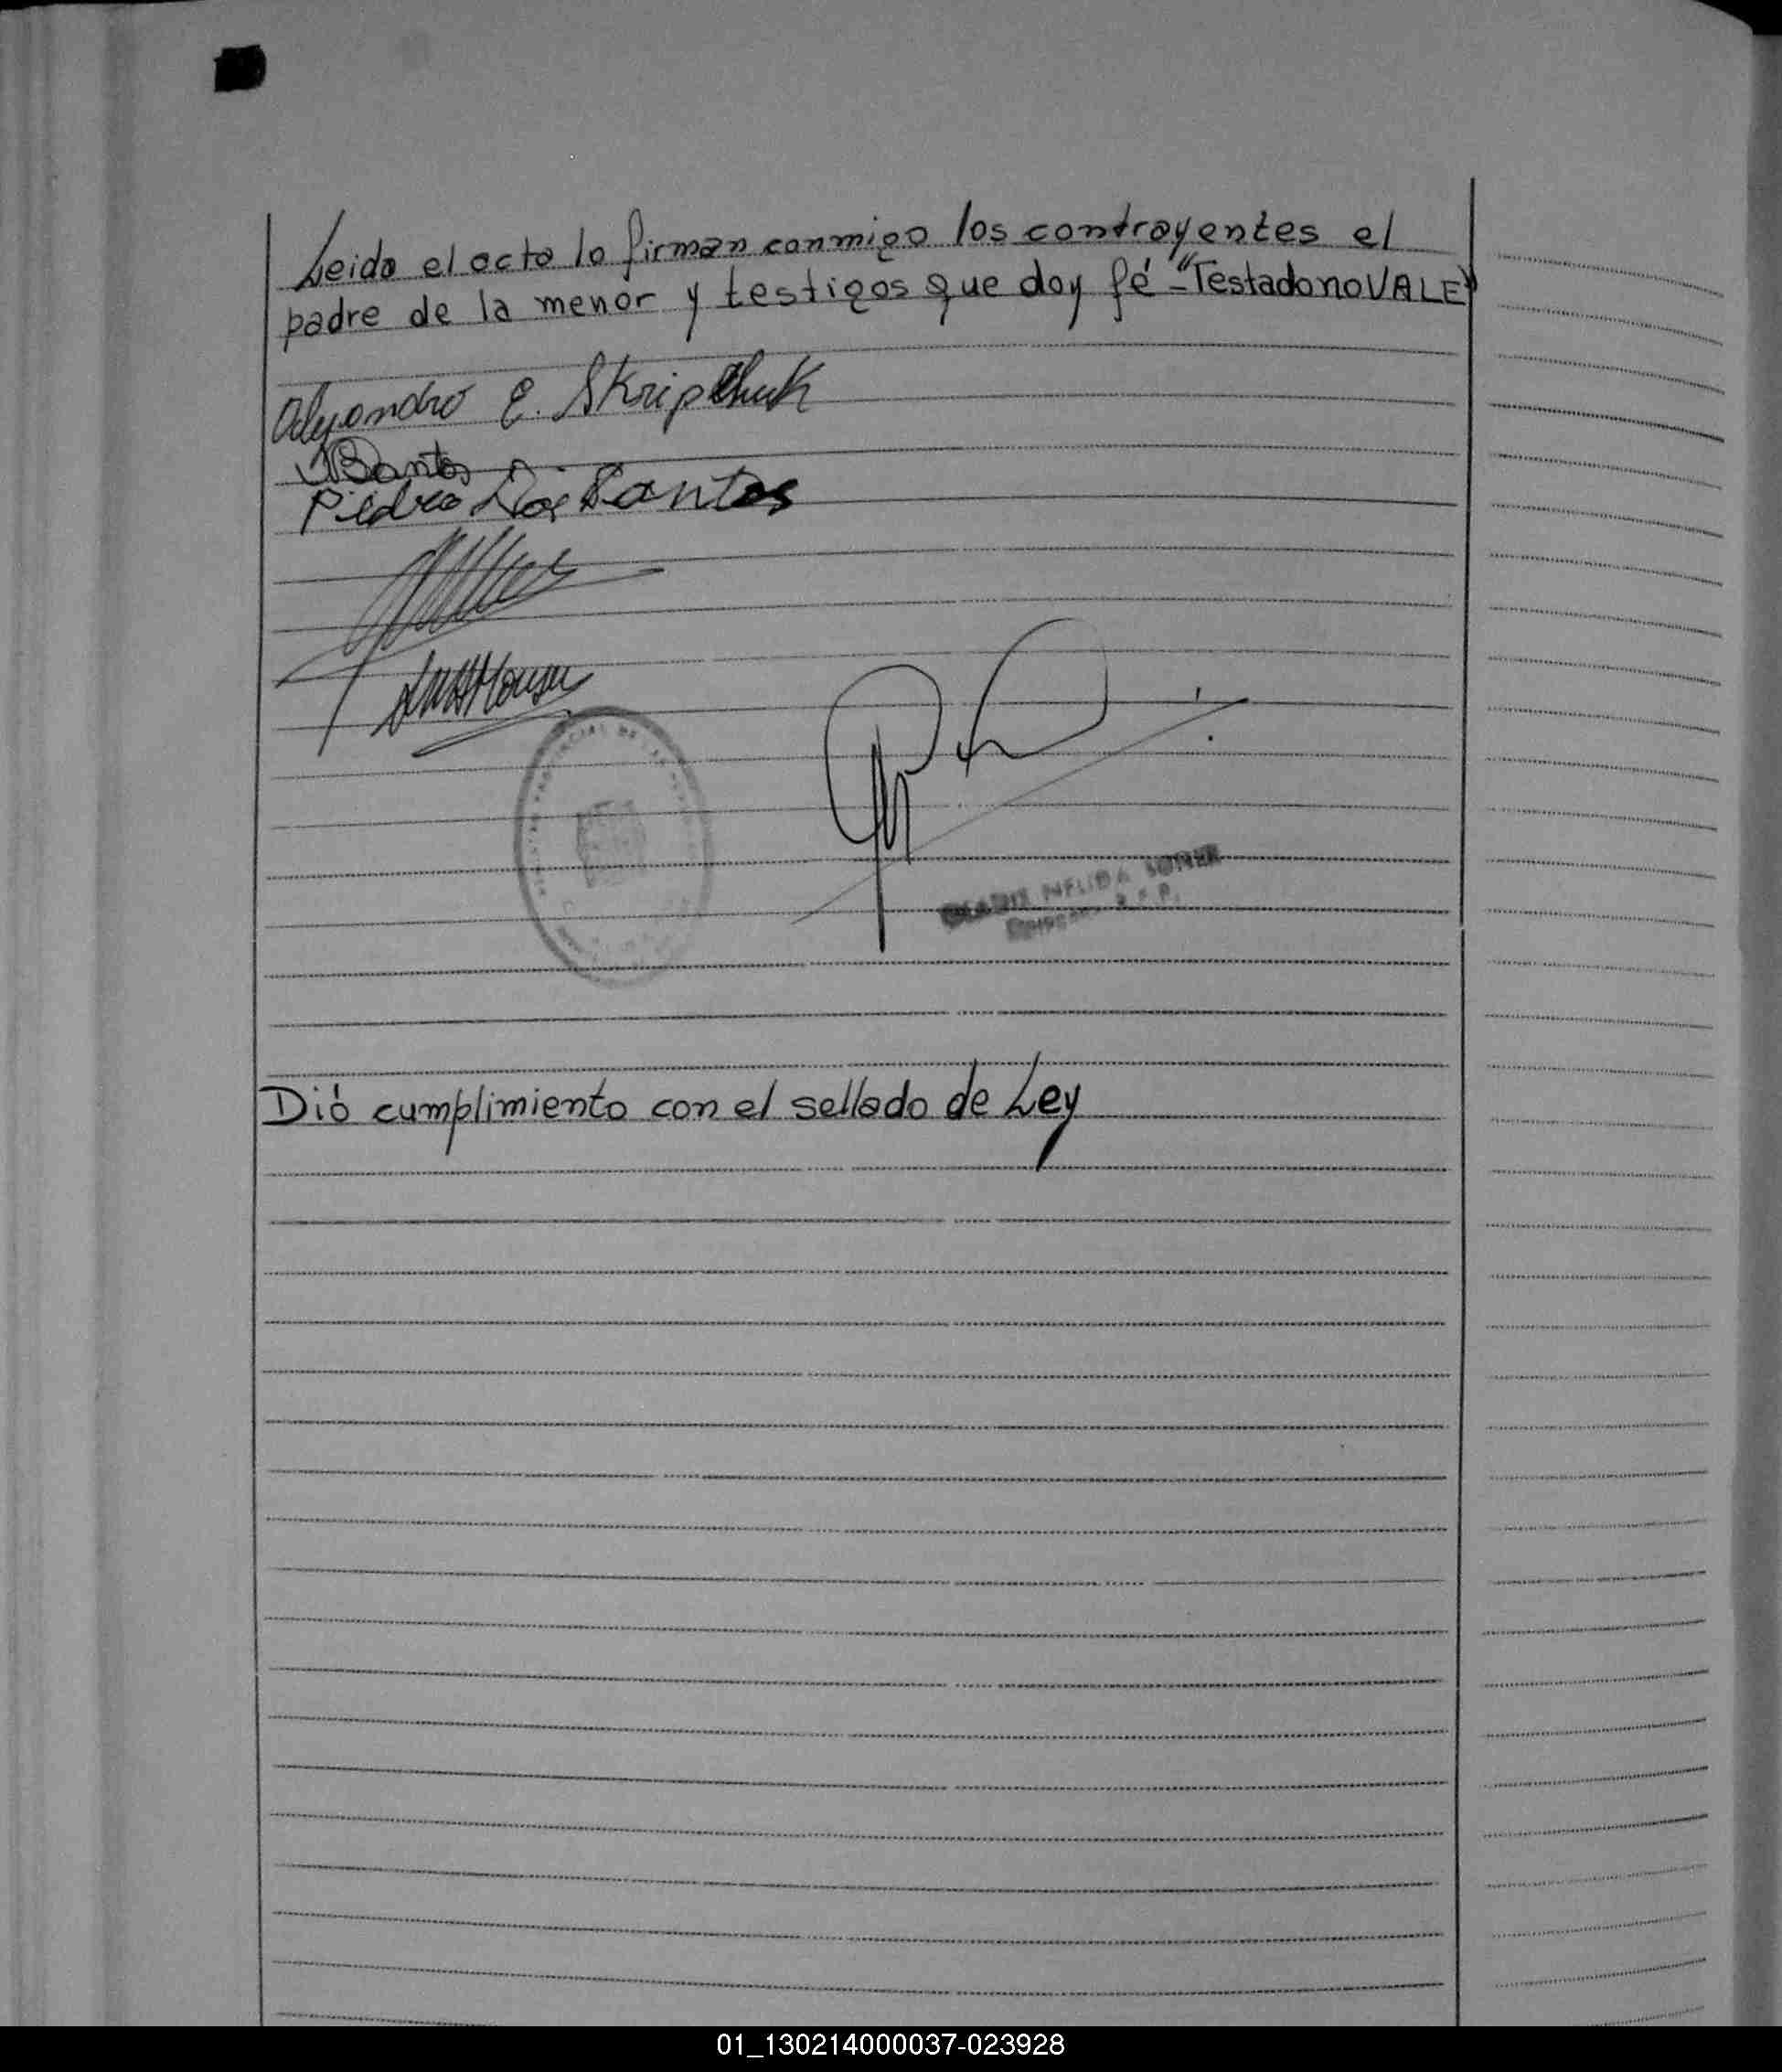 Leida el acta lo firman conmigo los contrayentes el
padre de la menor y testigos que doy fé - "Testado no VALE"
Alejandro E. Skripchuk
Pedro Dos Santos
NELIDA
Dió cumplimiento con el sellado de Ley
01_130214000037-023928